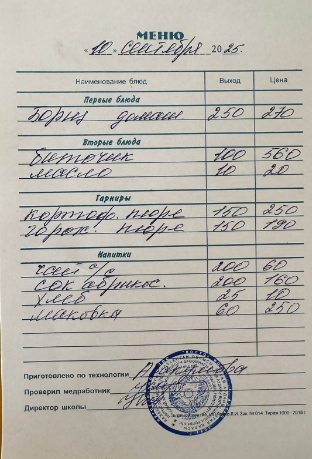 МЕНЮ
«10» сентября 2025.
Наименование блюд Выход Цена
Первые блюда
Борщ домаш 250 270
Вторые блюда
биточик 100 560
масло 10 20
Гарниры
картоф. пюре 150 250
горох. пюре 150 190
Напитки
чай с/с 200 60
сок абрикос. 200 160
хлеб 25 10
маковка 60 250
Приготовлено по технологии
Проверил медработник
Директор школы